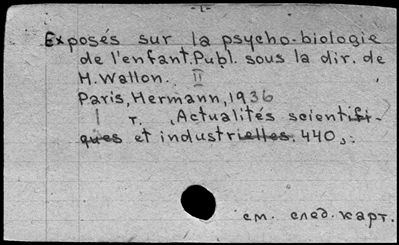 -1-
Exposés sur la psycho-biologie
de l'enfant. Publ. sous la dir. de
H. Wallon. II
Paris, Hermann, 1936
1 т. .Actualités scientifi-
ques et industrielles. 440,.
см. след. карт.